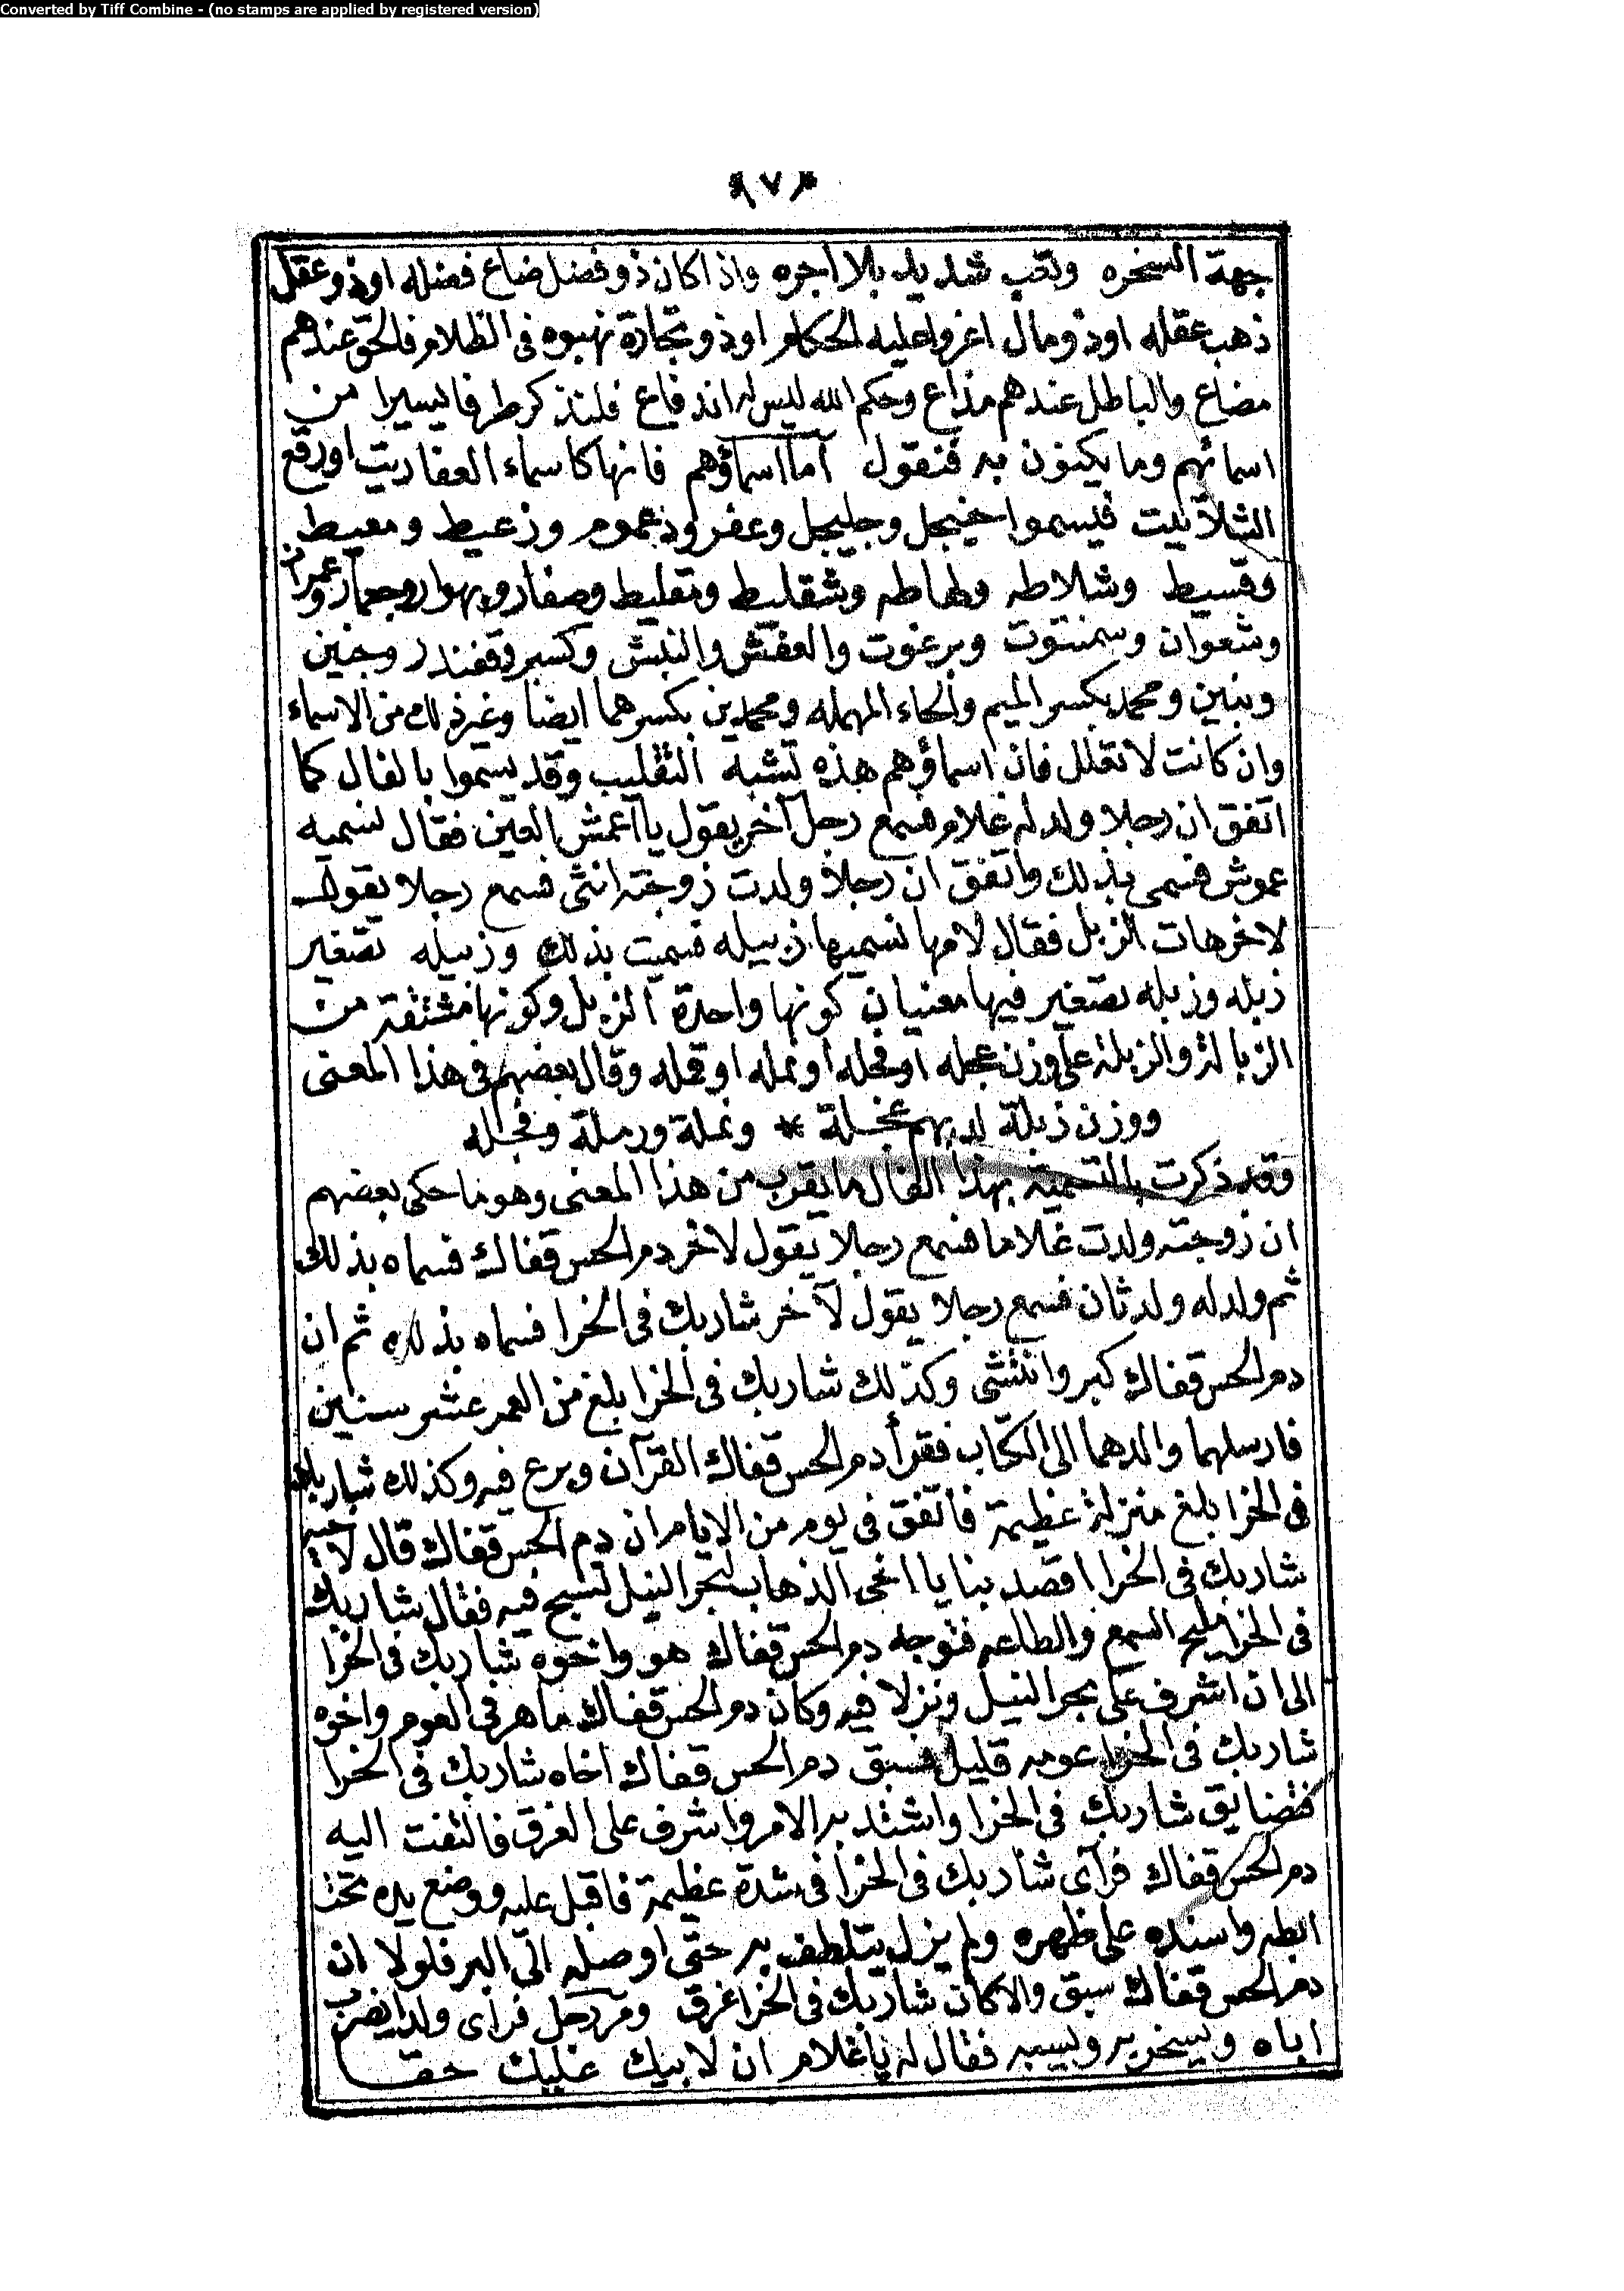 Converted by Tiff Combine - (no stamps are applied by registered version)
﴿٧﴾
جهة السخره وتعب شديد بلا اجره واذا كان ذو فضل ضاع فضله اوذو عقل
ذهب عقله اوذو مال اغروا عليه الحكام اوذو تجارة نهبوه فى الظلام فالحق عندهم
مضاع والباطل عندهم مذاع وحكم الله ليس له اندفاع فلنذكر طرفا يسيرا من
اسمائهم وما يكنون به فنقول اما اسماؤهم فانها كاسماء العفاريت اورقع
الشلاتيت فيسموا جنيجل وجليجل وعفر ودعموم وزعيط ومعيط
وقسيط وشلاطه ولهاطه وشقليط ومقليط وصفار وبهوار وجعمار وعمران
وشعوان وسمنتوت وبرغوت والعفش والنبش وكسبر وقفندر وجنين
وبنين ومحمد بكسر الميم والحاء المهمله ومحمدين بكسرهما ايضا وغير ذلك من الاسماء
وان كانت لا تعلل فان اسماؤهم هذه تشبه التقليب وقد يسموا بالفال كما
اتفق ان رجلا ولد له غلام فسمع رجل آخر يقول يا اعمش العين فقال نسميه
عموش فسمى بذلك واتفق ان رجلا ولدت زوجته انثى فسمع رجلا يقول
لاخر هات الزبل فقال لامها نسميها زبيله فسميت بذلك وزبيله تصغير
زبله وزبله تصغير فيها معنيان كونها واحدة الزبل وكونها مشتقة من
الزبالة والزبلة على وزن عجله اوفجله اونمله اوقمله وقال بعضهم فى هذا المعنى
ووزن زبلة لديهم عجلة * ونملة ورملة وفجله
وقد ذكرت بالتسمية بهذا الفال ما يقرب من هذا المعنى وهو ما حكى بعضهم
ان زوجته ولدت غلاما فسمع رجلا يقول لاخر دم الحس قفاك فسماه بذلك
ثم ولد له ولد ثان فسمع رجلا يقول لآخر شاربك فى الخرا فسماه بذلك ثم ان
دم الحس قفاك كبر وانتشى وكذلك شاربك فى الخرا بلغ من العمر عشر سنين
فارسلهما والدهما الى الكتاب فقرأ دم الحس قفاك القرآن وبرع فيه وكذلك شاربك
فى الخرا بلغ منزلة عظيمة فاتفق فى يوم من الايام ان دم الحس قفاك قال لاخيه
شاربك فى الخرا اقصد بنا يا اخى الذهاب لبحر النيل لنسبح فيه فقال شاربك
فى الخرا مليح السمع والطاعه فتوجه دم الحس قفاك هو واخوه شاربك فى الخرا
الى ان اشرف على بحر النيل ونزلا فيه وكان دم الحس قفاك ماهر فى العوم واخوه
شاربك فى الخرا عومه قليل فسبق دم الحس قفاك اخاه شاربك فى الخرا
فتضايق شاربك فى الخرا واشتد به الامر واشرف على الغرق فالتفت اليه
دم الحس قفاك فرآى شاربك فى الخرا فى شدة عظيمة فاقبل عليه ووضع يده تحت
ابطه واسنده على ظهره ولم يزل يتلطف به حتى اوصله الى البر فلولا ان
دم الحس قفاك سبق والا كان شاربك فى الخرا غرق ومر رجل فرأى ولدا يضرب
اباه ويسخر به ويسبه فقال له يا غلام ان لابيك عليك حقا